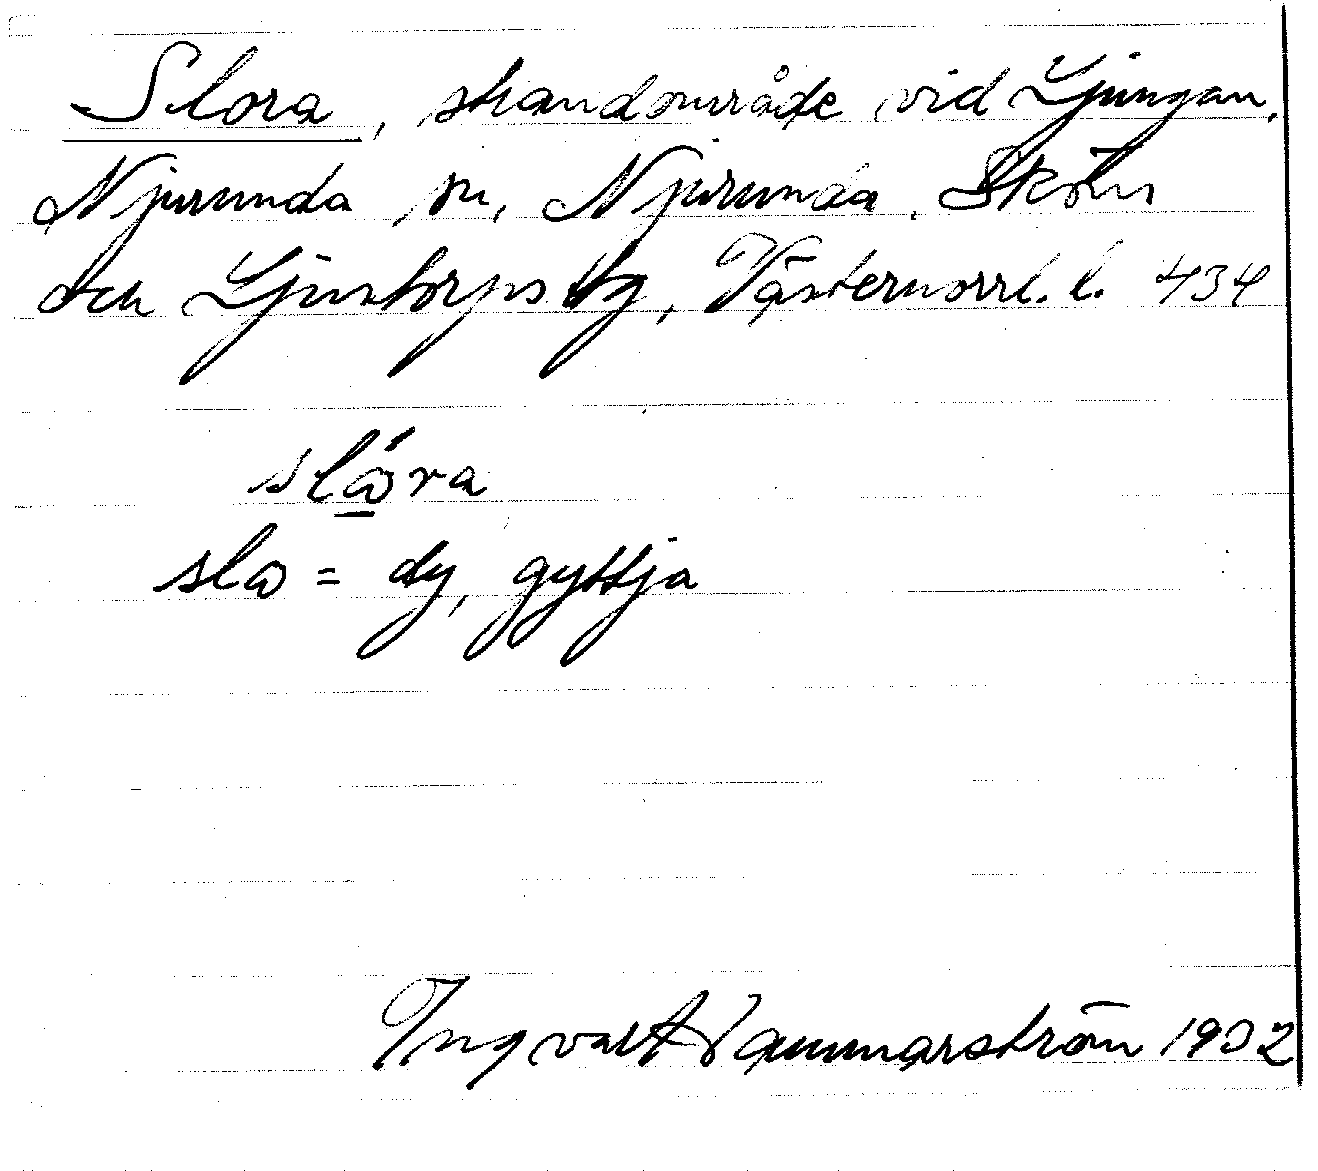 Slora, strandområde vid Ljungan,
Njurunda sn, Njurunda, Sköns
och Ljustorps tg, Västernorrl. l. 434
slώra
slω = dy, gyttja
Ingvart Hammarström 1932